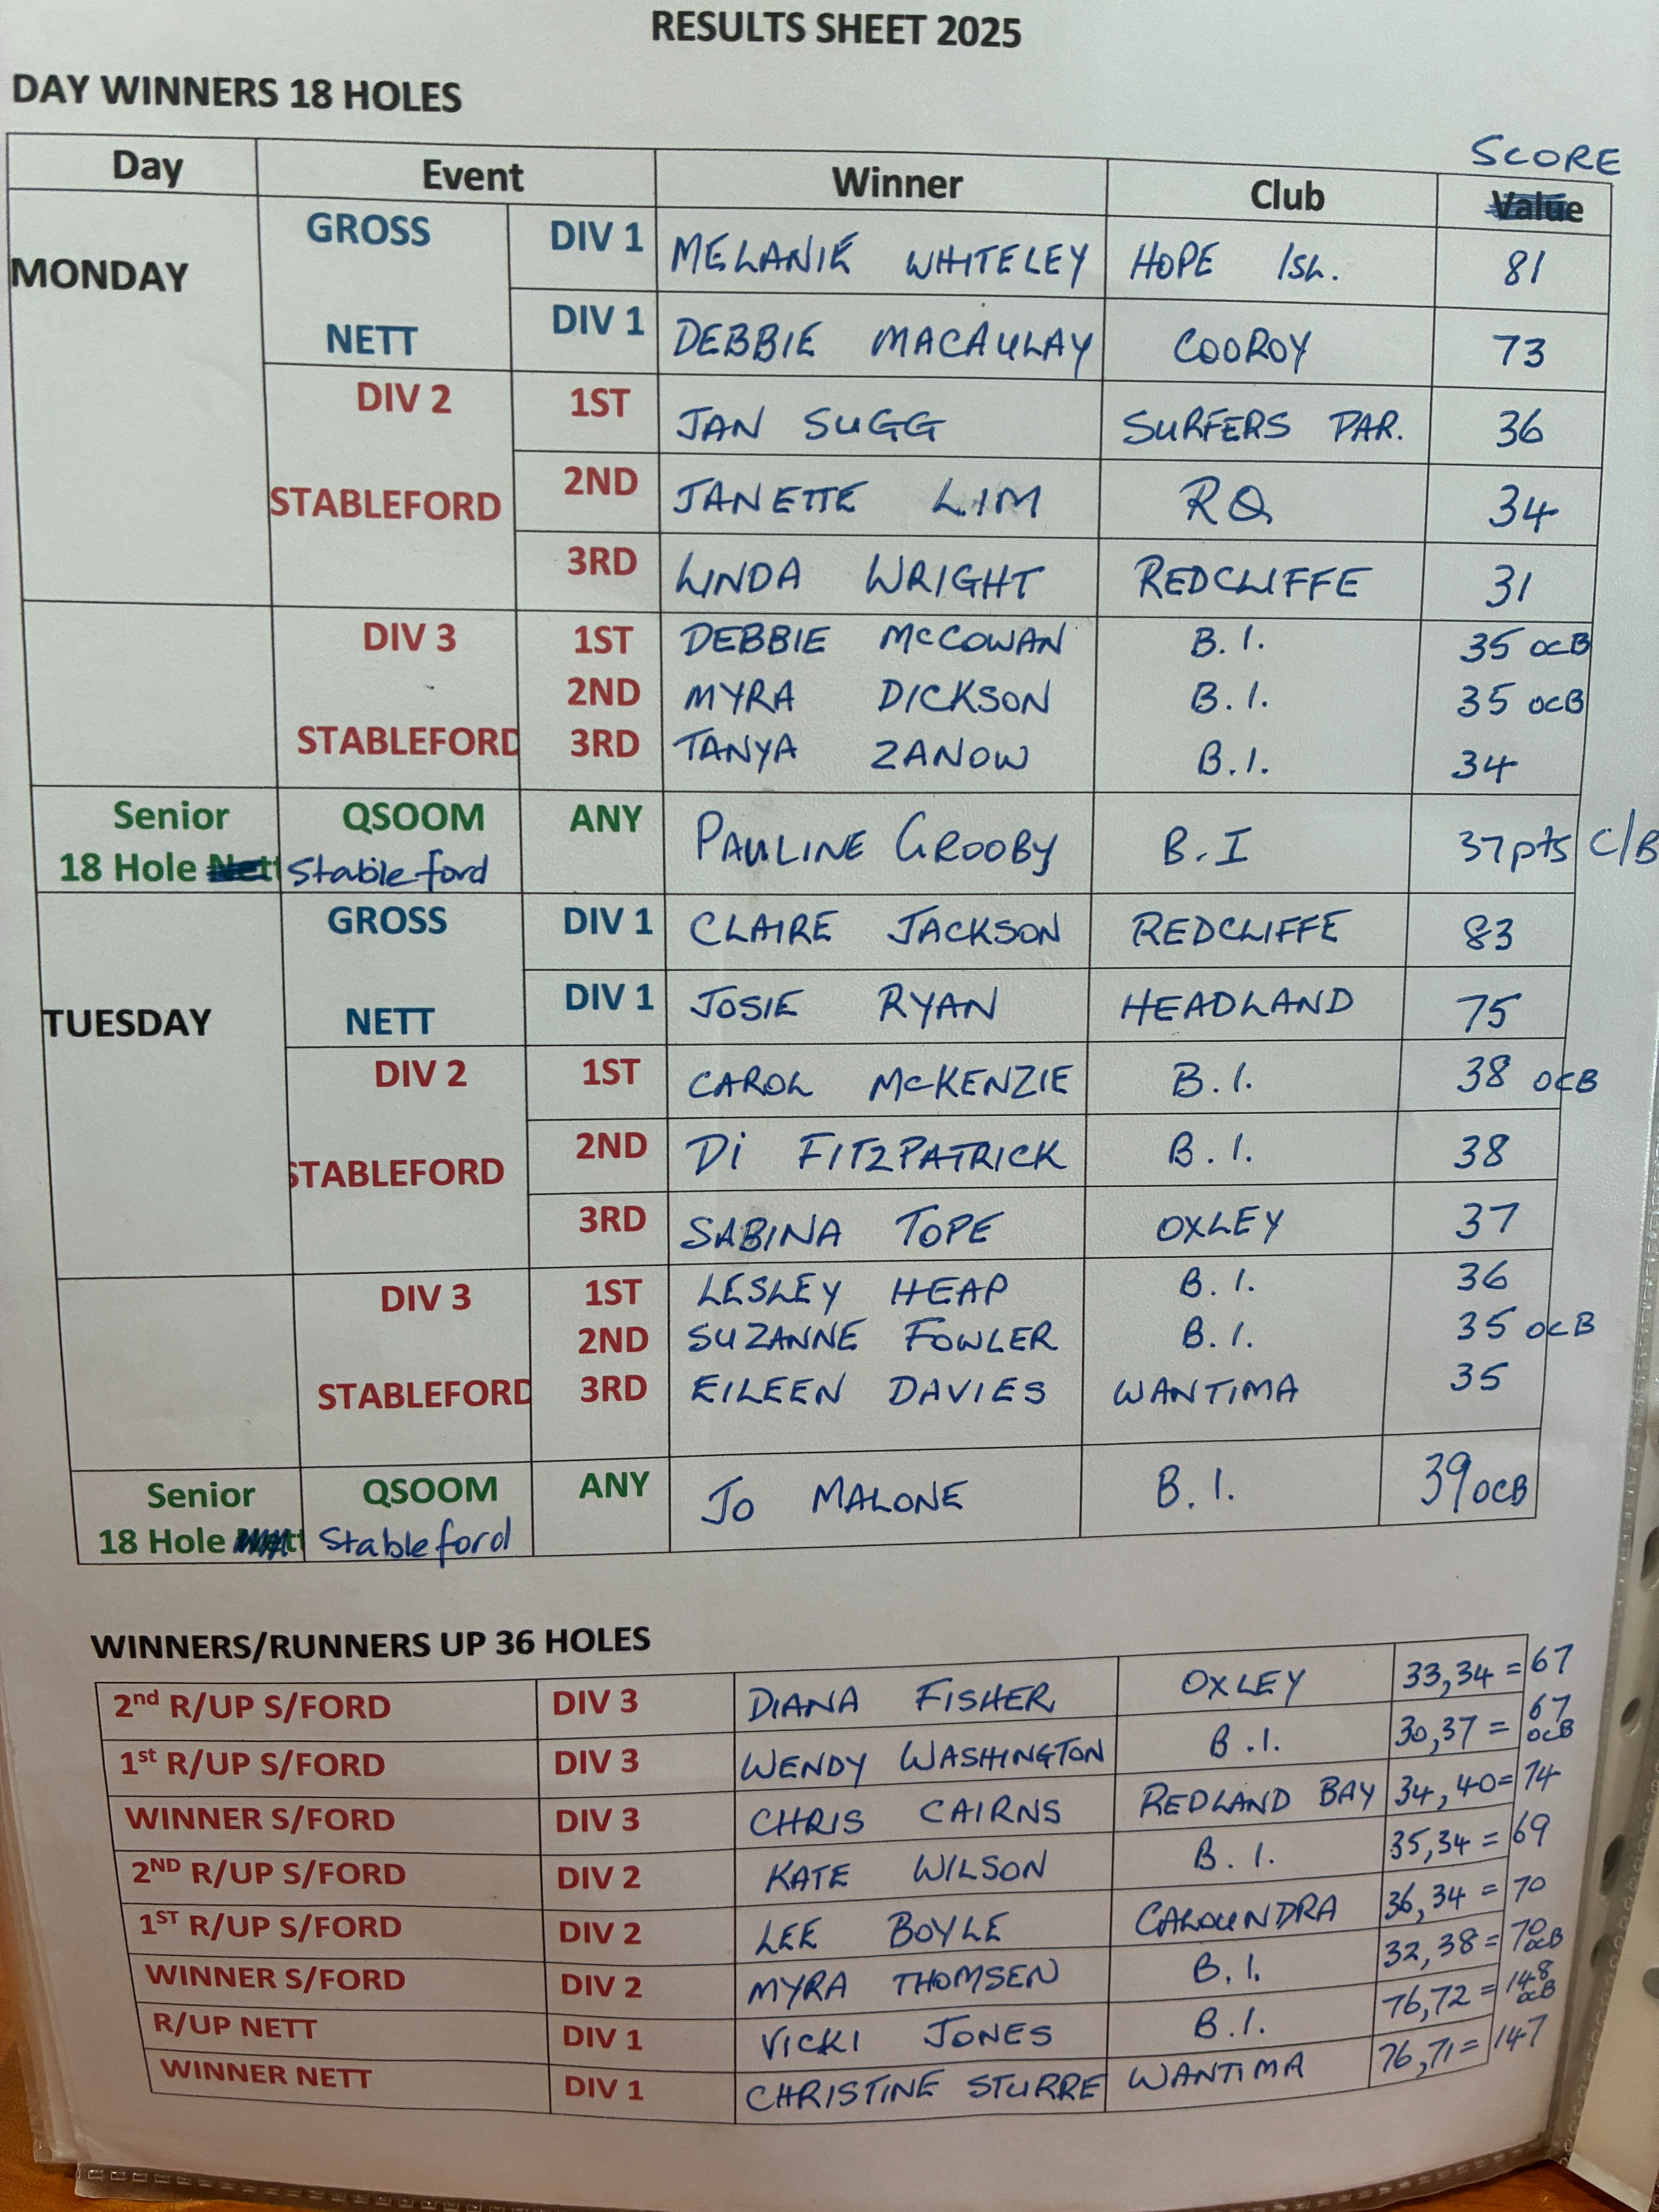 RESULTS SHEET 2025
DAY WINNERS 18 HOLES
SCORE
Day Event Winner Club Value
MONDAY GROSS DIV 1 MELANIE WHITELEY HOPE ISL. 81
NETT DIV 1 DEBBIE MACAULAY COOROY 73
DIV 2 1ST JAN SUGG SURFERS PAR. 36
STABLEFORD 2ND JANETTE LIM RQ 34
3RD LINDA WRIGHT REDCLIFFE 31
DIV 3 1ST DEBBIE McCOWAN B.I. 35 OCB
2ND MYRA DICKSON B.I. 35 OCB
STABLEFORD 3RD TANYA ZANOW B.I. 34
Senior QSOOM ANY PAULINE GROOBY B.I 37pts C/B
18 Hole Nett Stableford
GROSS DIV 1 CLAIRE JACKSON REDCLIFFE 83
TUESDAY NETT DIV 1 JOSIE RYAN HEADLAND 75
DIV 2 1ST CAROL McKENZIE B.I. 38 OCB
STABLEFORD 2ND Di FITZPATRICK B.I. 38
3RD SABINA TOPE OXLEY 37
DIV 3 1ST LESLEY HEAP B.I. 36
2ND SUZANNE FOWLER B.I. 35 OCB
STABLEFORD 3RD EILEEN DAVIES WANTIMA 35
Senior QSOOM ANY JO MALONE B.I. 39 OCB
18 Hole Nett Stableford
WINNERS/RUNNERS UP 36 HOLES
2nd R/UP S/FORD DIV 3 DIANA FISHER OXLEY 33,34 = 67
1st R/UP S/FORD DIV 3 WENDY WASHINGTON B.I. 30,37 = 67 OCB
WINNER S/FORD DIV 3 CHRIS CAIRNS REDLAND BAY 34,40 = 74
2ND R/UP S/FORD DIV 2 KATE WILSON B.I. 35,34 = 69
1ST R/UP S/FORD DIV 2 LEE BOYLE CALOUNDRA 36,34 = 70
WINNER S/FORD DIV 2 MYRA THOMSEN B.I. 32,38 = 70 OCB
R/UP NETT DIV 1 VICKI JONES B.I. 76,72 = 148 OCB
WINNER NETT DIV 1 CHRISTINE STURRE WANTIMA 76,71 = 147